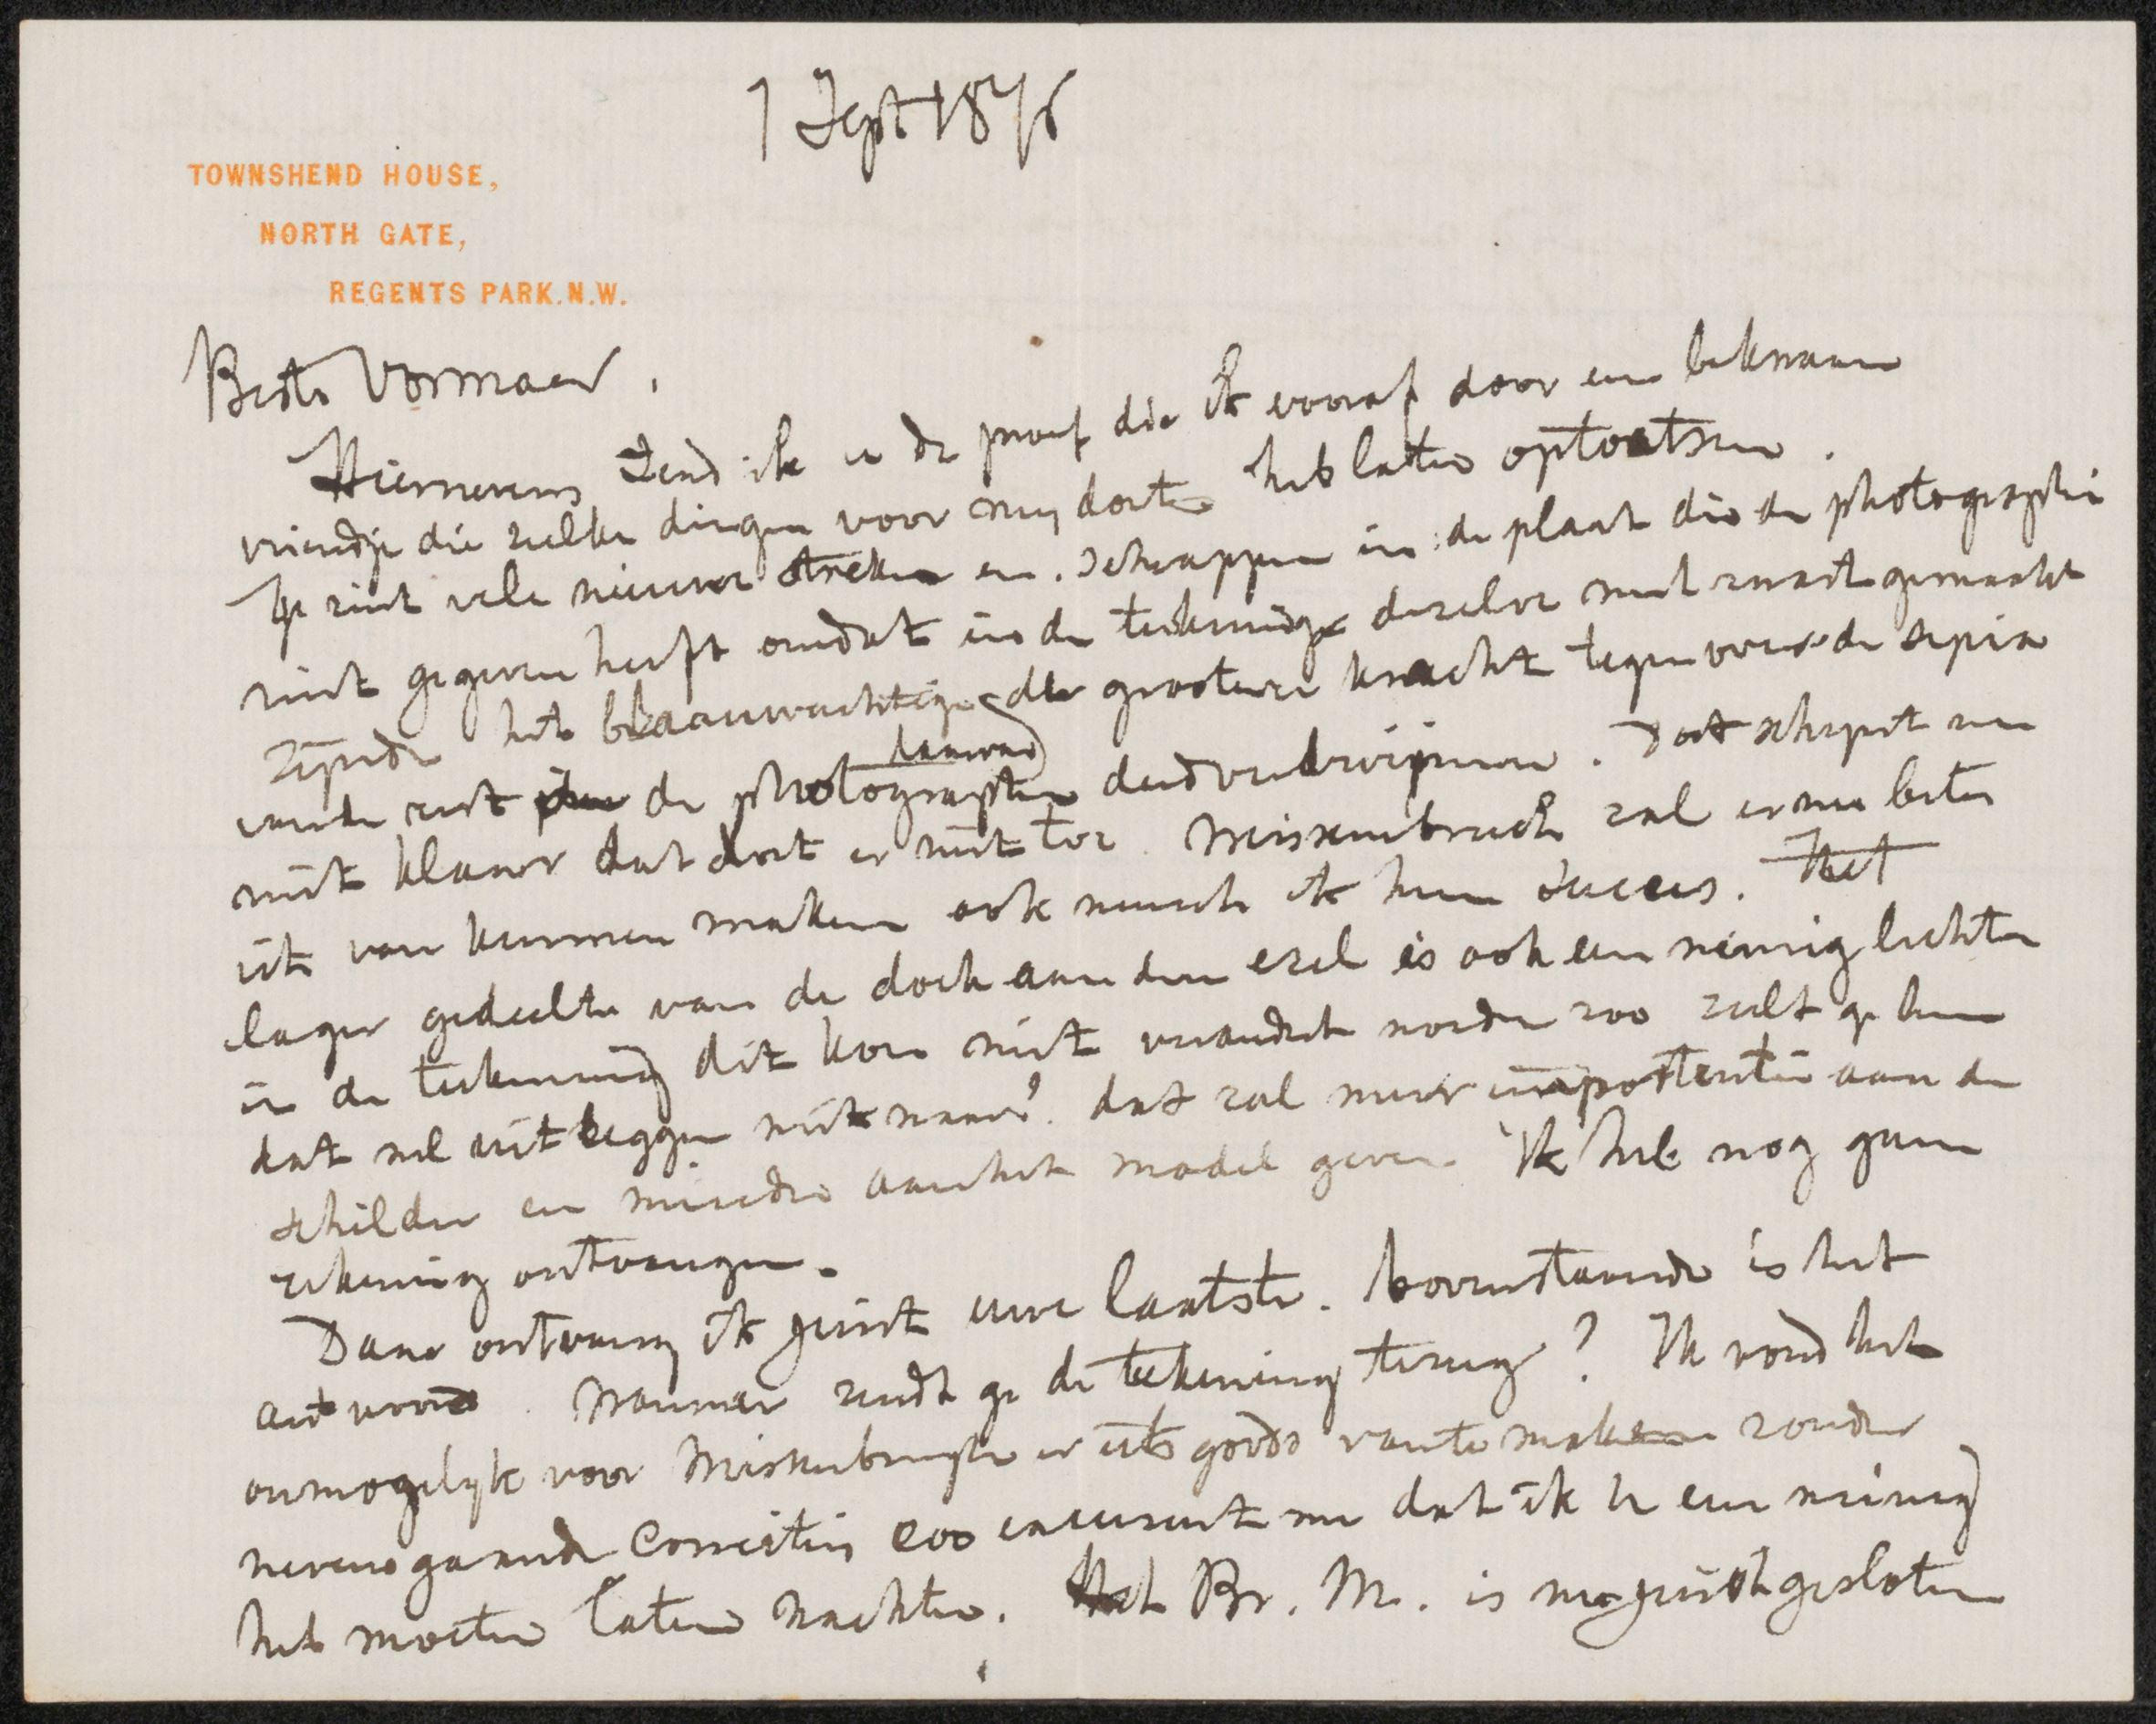 7 Sept 1876
TOWNSHEND HOUSE,
NORTH GATE,
REGENTS PARK. N.W.
Beste Vosmaer.
Hiernevens zend ik u de proef die ik vooraf door een bekwaam
vriendje die zulke dingen voor mij doet heb laten optoetsen.
Ge ziet vele nieuwe streken en schrappen in de plaat die de photographie
niet gegeven heeft omdat in de tekening dezelve met zwart gemaakt
zijnde het blaauwachtige der grootere kracht tegenover de sepia
van de rest de photographie daarvan deed verdwijnen. Dat schept nu
niet klaar dat doet er niet toe. Meissenbruch zal er nu beter
iets van kunnen maken ook wensch ik hem succes. Het
lager gedeelte van de doek aan den ezel is ook een weinig lichter
in de tekening dit kon niet verandert worden zoo zult ge hem
dat wel uitleggen niet waar? dat zal meer importentie aan de
schilder en minder aan het model geven. Ik heb nog geen
rekening ontvangen.
Daar ontvang ik juist uwe laatste. bovenstaande is het
antwoord. Wanneer zendt ge de tekening terug? Ik vond het
onmogelijk voor Miskenbrugh er iets goeds van te maken zonder
nevensgaande correctie zoo excuseert me dat ik U een weinig
heb moeten laten wachten. Het Br. M. is nu juist gesloten